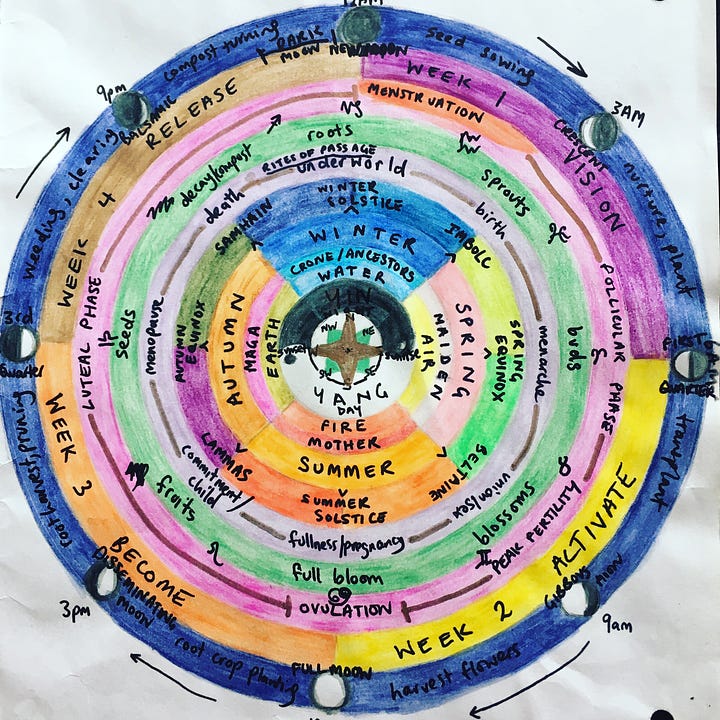 12pm
DARK
MOON NEW MOON
seed sowing
compost turning
9pm
BALSAMIC
RELEASE
WEEK 1
MENSTRUATION
3AM
CRESCENT
VISION
nurture, plant
weeding, clearing
WEEK 4
roots
sprouts
RITES OF PASSAGE
underworld
decay/compost
death
birth
WINTER
SOLSTICE
SAMHAIN
IMBOLC
WINTER
CRONE/ANCESTORS
WATER
YIN
N
NW
NE
sunset
sunrise
W
SW
SE
S
YANG
DAY
FIRE
MOTHER
SUMMER
SUMMER
SOLSTICE
EARTH
MAGA
AUTUMN
AUTUMN
EQUINOX
AIR
MAIDEN
SPRING
SPRING
EQUINOX
menopause
menarche
seeds
buds
LUTEAL PHASE
FOLLICULAR PHASE
3rd
Quarter
FIRST
QUARTER
LAMMAS
BELTAINE
commitment/
child
union/sex
fruits
blossoms
fullness/pregnancy
full bloom
PEAK FERTILITY
OVULATION
WEEK 3
root harvest, pruning
transplant
ACTIVATE
BECOME
DISSEMINATING
MOON
3pm
GIBBOUS MOON
9am
WEEK 2
root crop planting
FULL MOON
harvest flowers